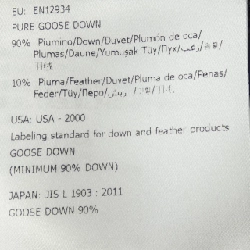 EU: EN12934
PURE GOOSE DOWN
90% Piumino/Down/Duvet/Plumón de oca/
Plumas/Daune/Yumuşak Tüy/Пух/زغب/
10% Piuma/Feather/Duvet/Pluma de oca/Penas/
Feder/Tüy/Перо/ريش/
USA: USA - 2000
Labeling standard for down and feather products
GOOSE DOWN
(MINIMUM 90% DOWN)
JAPAN: JIS L 1903 : 2011
GOOSE DOWN 90%